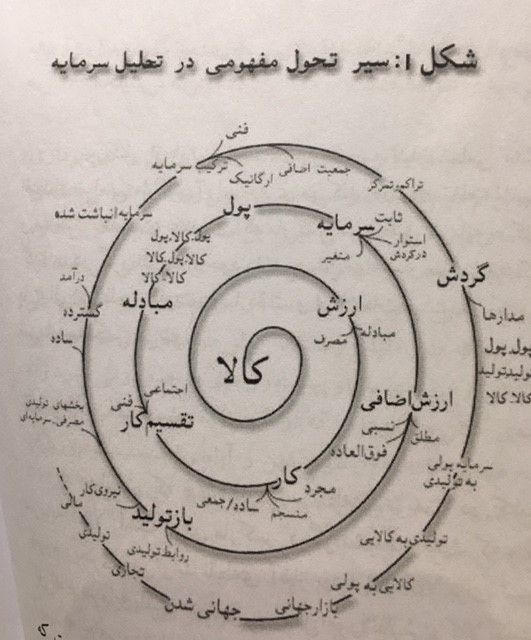 شکل ۱: سیر تحول مفهومی در تحلیل سرمایه
کالا
ارزش
مبادله
مصرف
کار
مجرد
منسجم
ساده/جمعی
تقسیم کار
فنی
اجتماعی
مبادله
کالا.کالا
کالا.پول.کالا
پول.کالا.پول
پول
سرمایه
ثابت
متغیر
استوار
در گردش
ارزش اضافی
نسبی
مطلق
فوق‌العاده
بازتولید
نیروی کار
روابط تولیدی
بخشهای تولیدی
مصرفی.سرمایه‌ای
ساده
گسترده
درآمد
سرمایه انباشت شده
ترکیب سرمایه
فنی
ارگانیک
جمعیت اضافی
تراکم.تمرکز
گردش
مدارها
پول.پول
تولید.تولید
کالا.کالا
سرمایه پولی
به تولیدی
تولیدی به کالایی
کالایی به پولی
بازار جهانی
جهانی شدن
تجاری
تولیدی
مالی